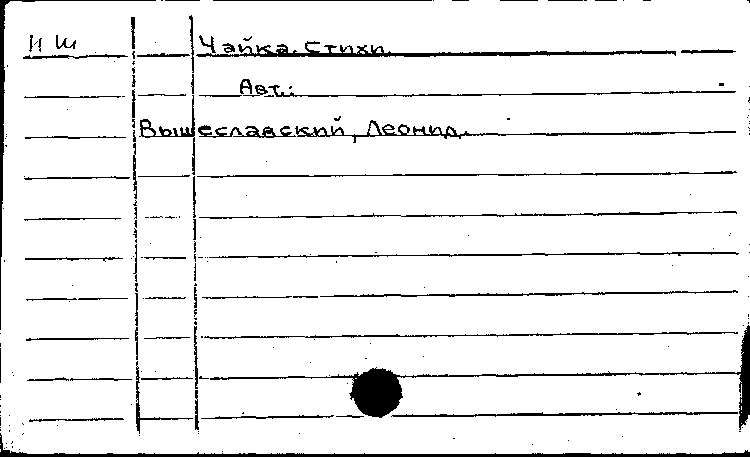 И Ш Чайка. Стихи
Авт.:
Вышеславский, Леонид.